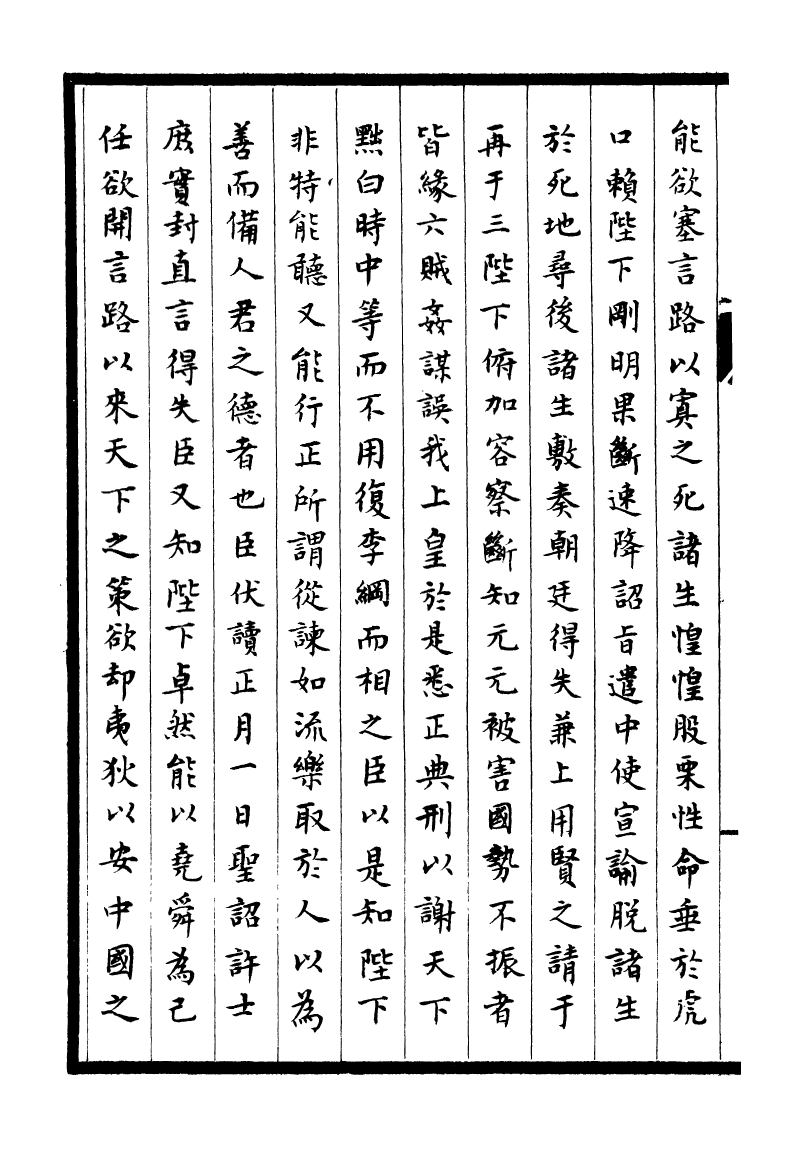 能欲塞言路以寘之死諸生惶惶股栗性命垂於虎
口賴陛下剛明果斷速降詔旨遣中使宣諭脱諸生
於死地尋後諸生敷奏朝廷得失兼上用賢之請于
再于三陛下俯加容察斷知元元被害國勢不振者
皆緣六賊姦謀誤我上皇於是悉正典刑以謝天下
黜白時中等而不用復李綱而相之臣以是知陛下
非特能聽又能行正所謂從諫如流樂取於人以為
善而備人君之德者也臣伏讀正月一日聖詔許士
庶實封直言得失臣又知陛下卓然能以堯舜為己
任欲開言路以來天下之策欲却夷狄以安中國之